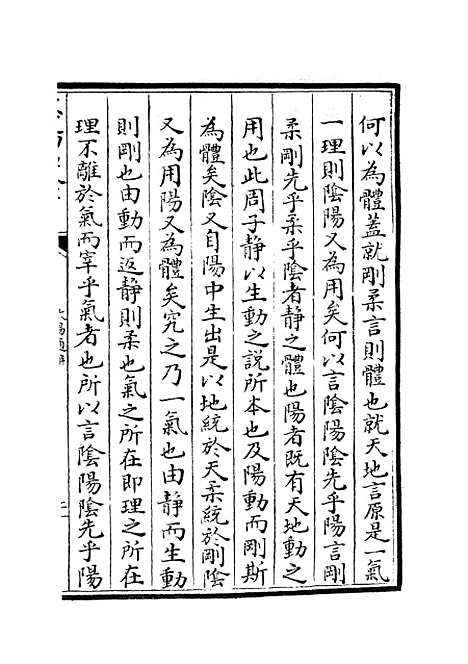 何以為體蓋就剛柔言則體也就天地言原是一氣
一理則陰陽又為用矣何以言陰陽陰先乎陽言剛
柔剛先乎柔乎陰者静之體也陽者既有天地動之
用也此周子静以生動之說所本也及陽動而剛斯
為體矣陰又自陽中生出是以地統於天柔統於剛陰
又為用陽又為體矣究之乃一氣也由静而生動
則剛也由動而返静則柔也氣之所在即理之所在
理不離於氣而宰乎氣者也所以言陰陽陰先乎陽